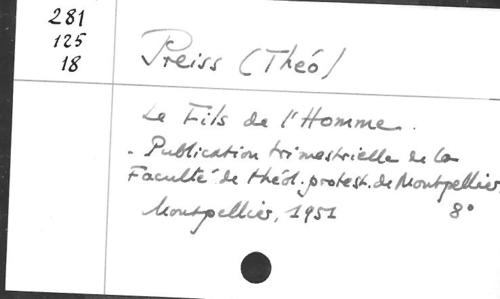 281
125
18
Preiss (Théo)
Le Fils de l'Homme.
- Publication trimestrielle de la
Faculté de théol. protest. de Montpellier.
Montpellier, 1951 8°